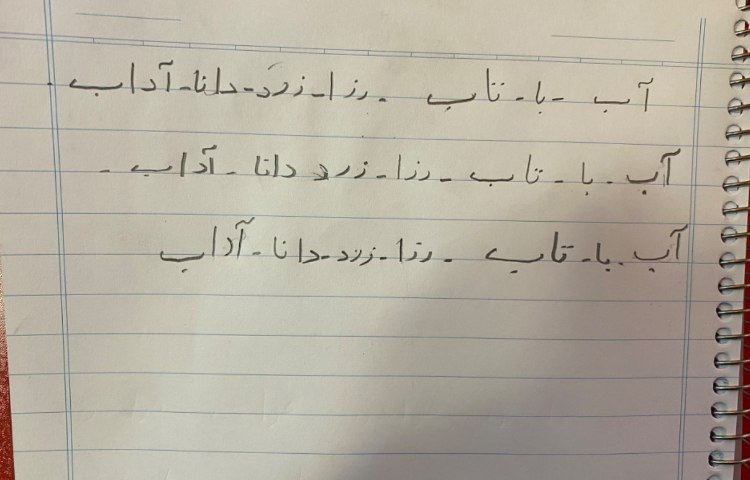 آب - با - تاب - رزا - زرد - دانا - آداب -
آب - با - تاب - رزا - زرد دانا - آداب -
آب - با - تاب - رزا - زرد - دانا - آداب